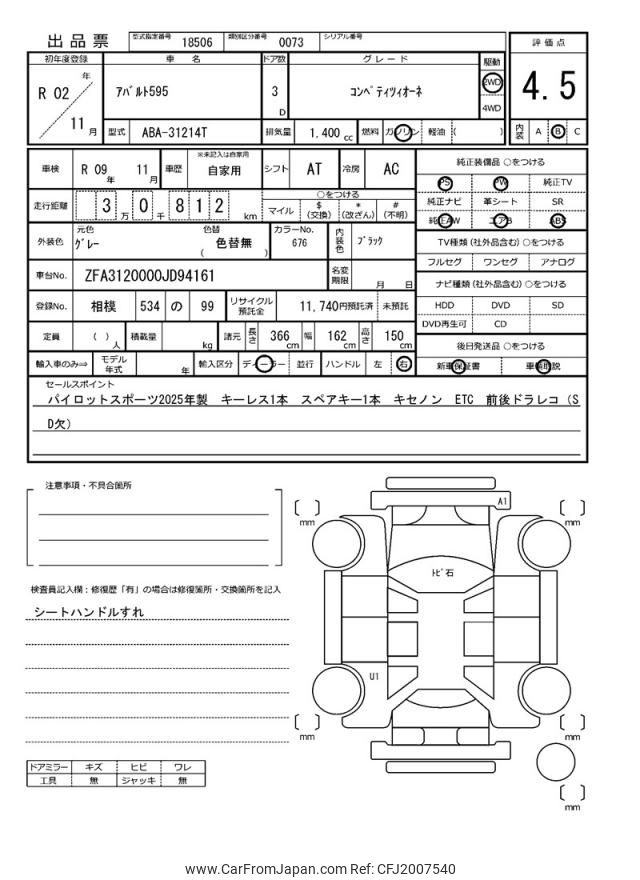 出品票 型式指定番号 18506 類別区分番号 0073 シリアル番号
初年度登録 車名 ドア数 グレード 駆動 評価点
R 02 年 11 月 アバルト595 3 D コンペティツィオーネ 2WD 4WD 4.5
型式 ABA-31214T 排気量 1,400 cc 燃料 ガソリン 軽油 ( ) 内装 A B C
車検 R 09 年 11 月 車歴 ※未記入は自家用 自家用 シフト AT 冷房 AC
純正装備品 ○をつける
PS PW 純正TV
純正ナビ 革シート SR
純正AW エアB ABS
走行距離 3 万 0 千 8 1 2 km
○をつける
マイル $ (交換) * (改ざん) # (不明)
外装色 元色 グレー 色替 色替無 ( ) カラーNo. 676 内装色 ブラック
TV種類 (社外品含む) ○をつける
フルセグ ワンセグ アナログ
車台No. ZFA3120000JD94161 名変期限 月 日
ナビ種類 (社外品含む) ○をつける
HDD DVD SD
DVD再生可 CD
登録No. 相模 534 の 99 リサイクル預託金 11,740円預託済 未預託
定員 ( ) 人 積載量 kg 諸元 長さ 366 cm 幅 162 cm 高さ 150 cm
後日発送品 ○をつける
新車保証書 車輌取説
輸入車のみ⇒ モデル年式 年 輸入区分 ディーラー 並行 ハンドル 左 右
セールスポイント
パイロットスポーツ2025年製 キーレス1本 スペアキー1本 キセノン ETC 前後ドラレコ（S
D欠）
注意事項・不具合箇所
検査員記入欄：修復歴「有」の場合は修復箇所・交換箇所を記入
シートハンドルすれ
A1
トビ石
U1
[ ] mm
[ ] mm
[ ] mm
[ ] mm
[ ] mm
ドアミラー キズ ヒビ ワレ
工具 無 ジャッキ 無
www.CarFromJapan.com Ref: CFJ2007540